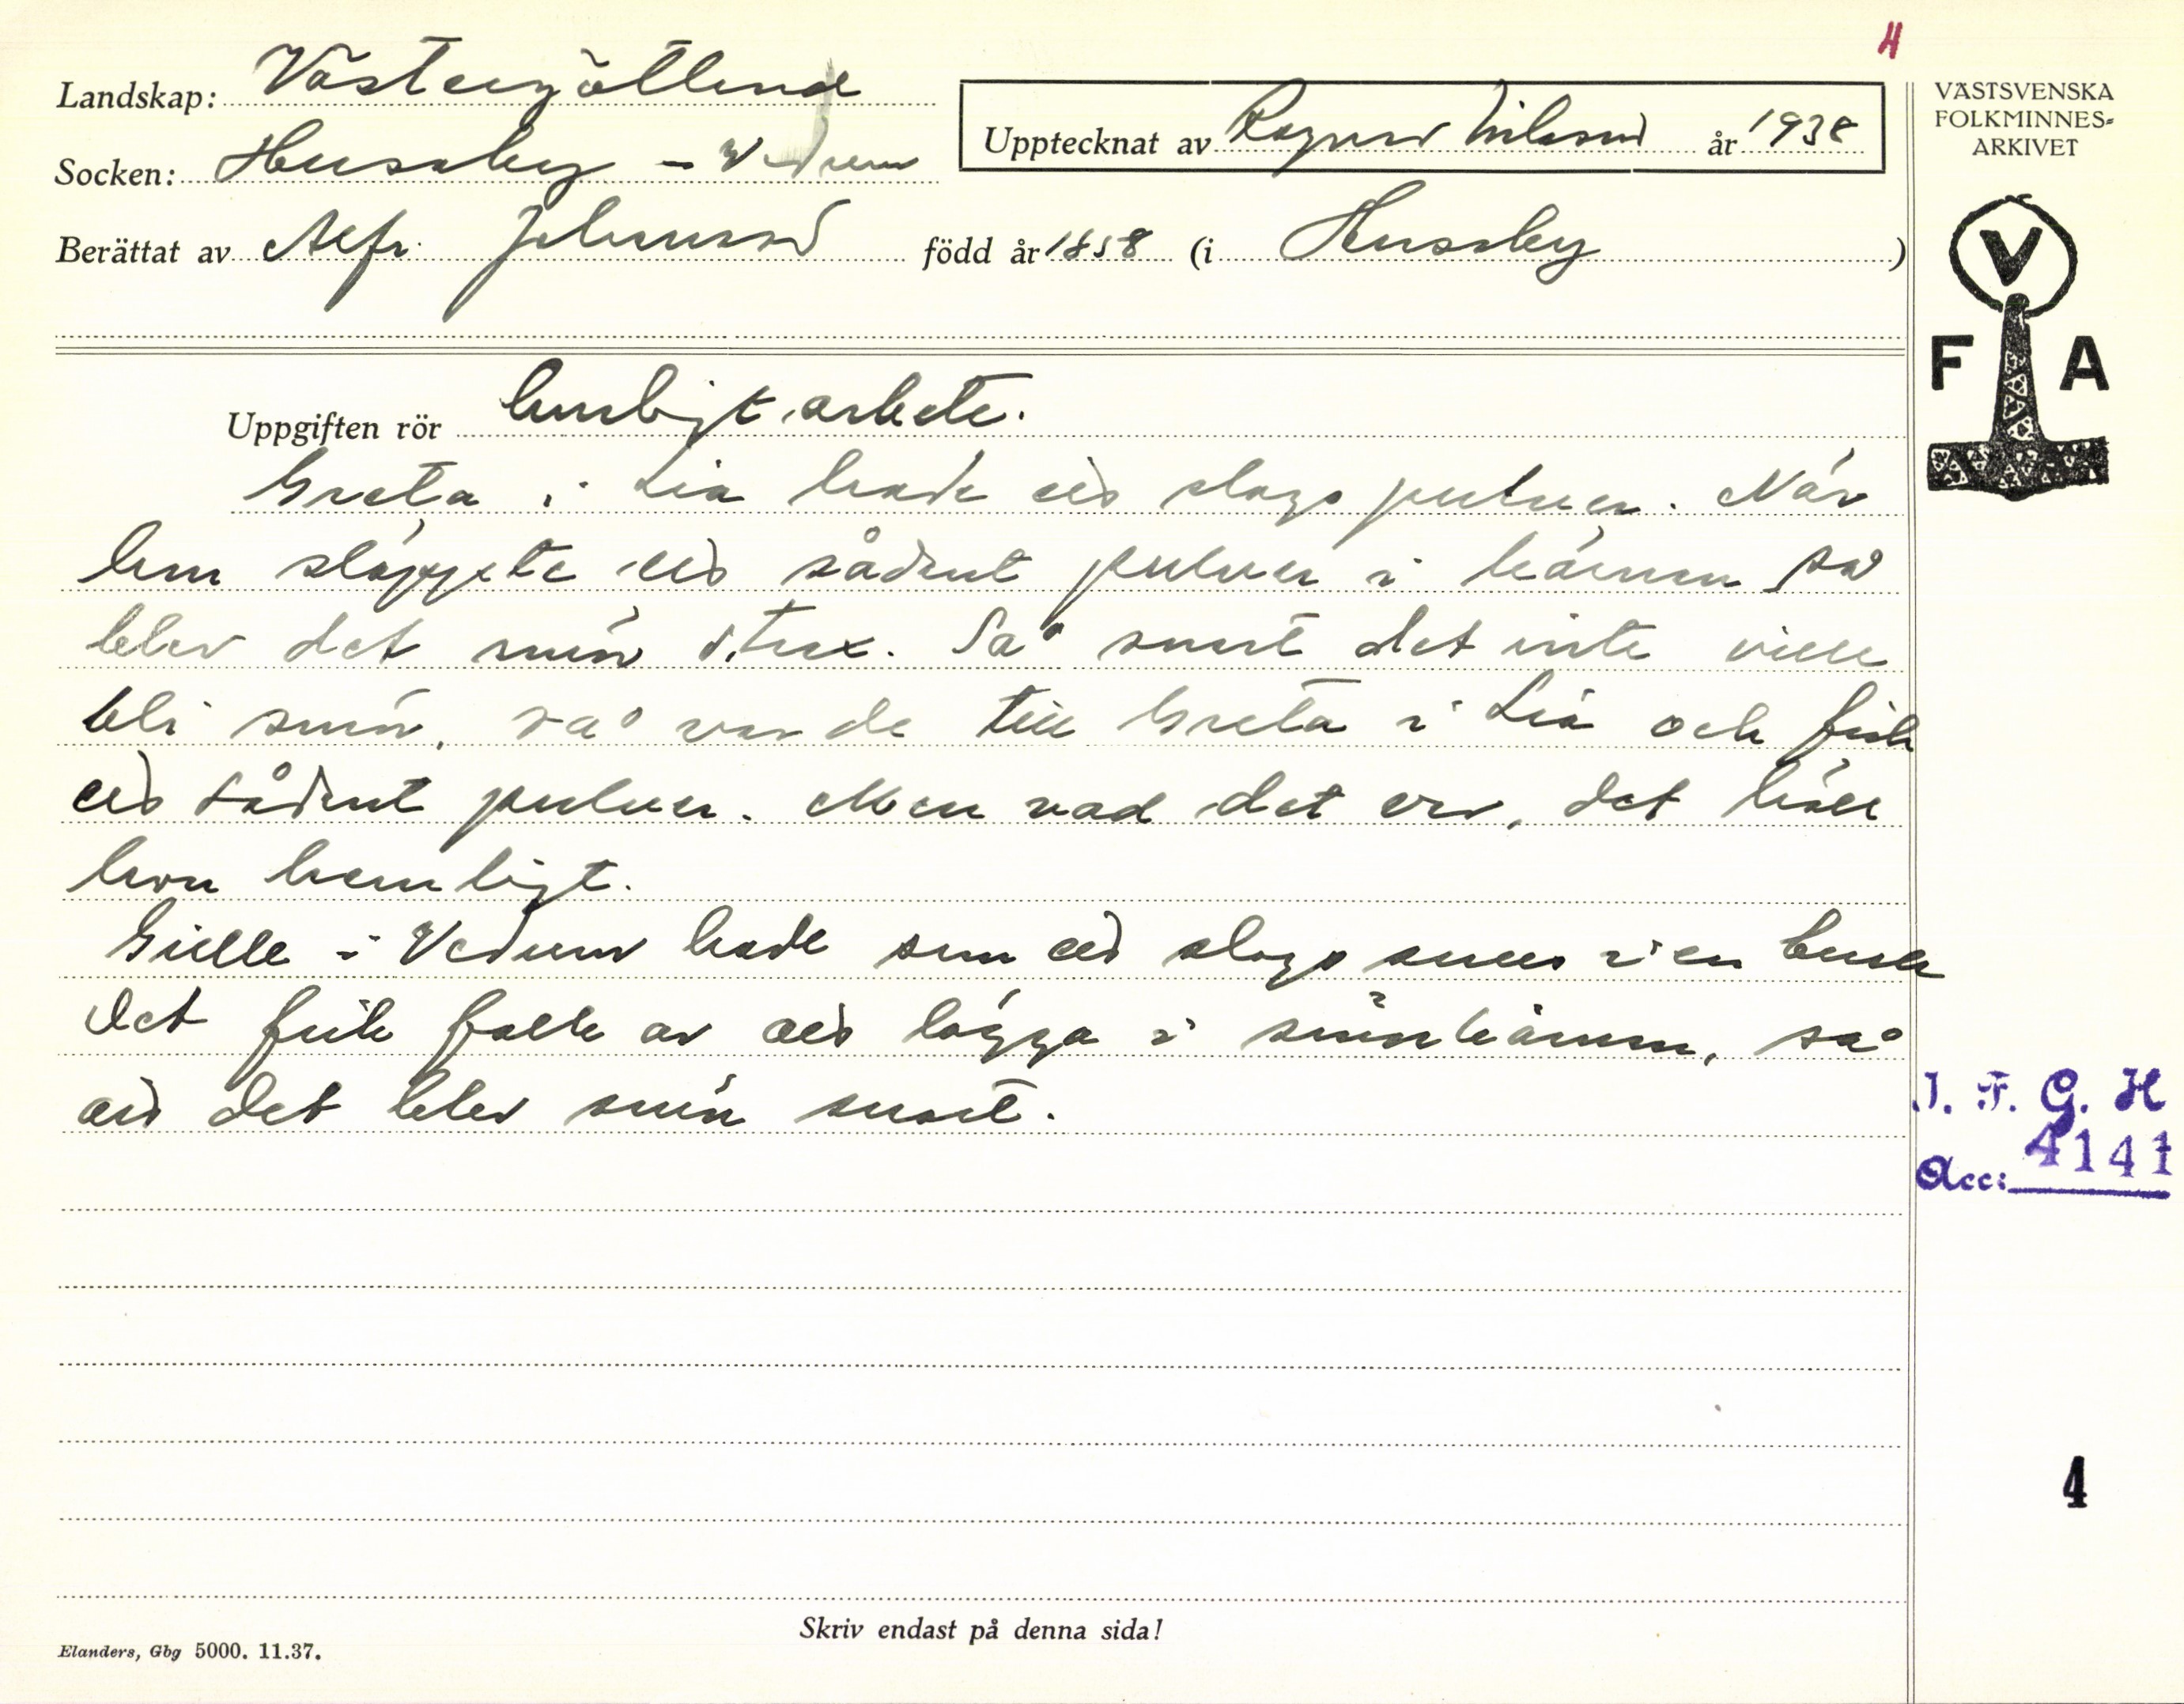 4
Landskap: Västergötland
Socken: Husaby - Vedum
Upptecknat av Ragnar Nilsson år 1938
Berättat av Alfr. Johansson född år 1858 (i Husaby)
VÄSTSVENSKA
FOLKMINNES-
ARKIVET
V
F A
Uppgiften rör husligt arbete.
Greta i Lia hade ett slags pulver. När
hon släppte ett sådant pulver i kärnan så
blev det smör strax. Så snart det inte ville
bli smör, så var de till Greta i Lia och fick
ett sådant pulver. Men vad det var, det höll
hon hemligt.
i Vedum hade som ett slags snus i en burk
Det fick folk av att lägga i smörkärnan, så
att det blev smör snart.
I. F. G. H
Acc: 4141
4
Skriv endast på denna sida!
Elanders, Gbg 5000. 11.37.